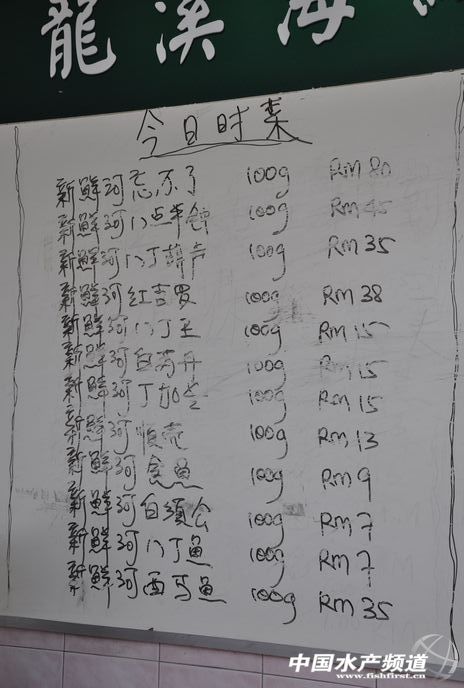 龍溪海
今日时菜
新鮮河忘不了 100g RM 80
新鮮河八点半钟 100g RM 45
新鮮河八丁葫芦 100g RM 35
新鮮河红吉罗 100g RM 38
新鮮河八丁王 100g RM 15
新鮮河白苏丹 100g RM 15
新鮮河丁加兰 100g RM 15
新鮮河 100g RM 13
新鮮河 魚 100g RM 9
新鮮河白須公 100g RM 7
新鮮河八丁魚 100g RM 7
新鮮河西马魚 100g RM 35
中国水产频道
www.fishfirst.cn